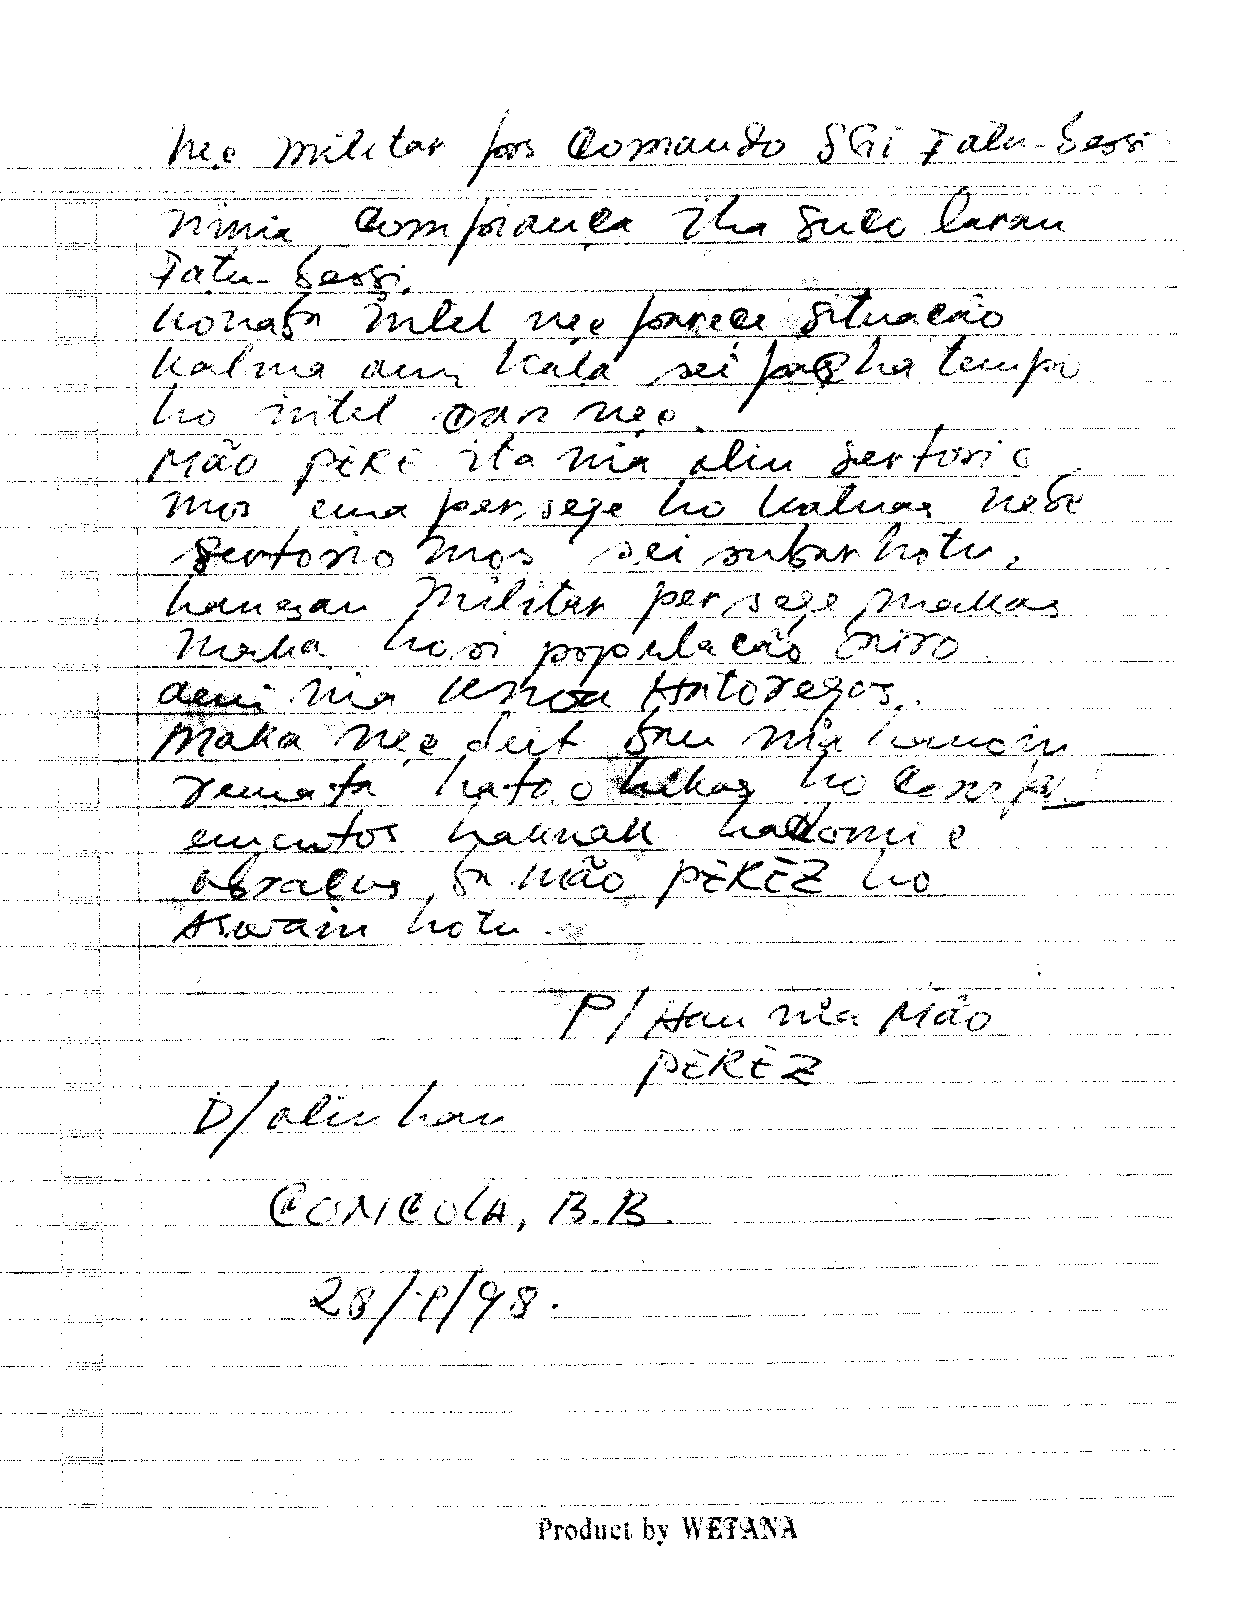 nee militar pos Comando SGI Fatu-Bessi
ninia, Compiança iha suco laran
Fatu-Bessi.
Konaba intel nee parece situacão
Kalma ami Kala sei ha tempo
ho intel nee.
MÃO PÈRE ita nia alin Sertorio
mos ema persege ho Kalnas nebe
Sertorio mos sei subar hotu,
hanesan Militar persege makas
maka hosi populacão siro
ami nia Knoa Hatoregas.
Maka nee deit Bau nia hanoin
remata hato.o ho Compr
ementos haknak hadomi e
abracus, ba Mão PÈRÈZ ho
Aswain hotu.
P/ Hau nia Mão
PÈRÈZ
D/ alin hau
CONCOLA, B.B.
28/ /98.
Product by WETANA